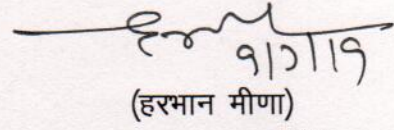 9/7/19
(हरभान मीणा)